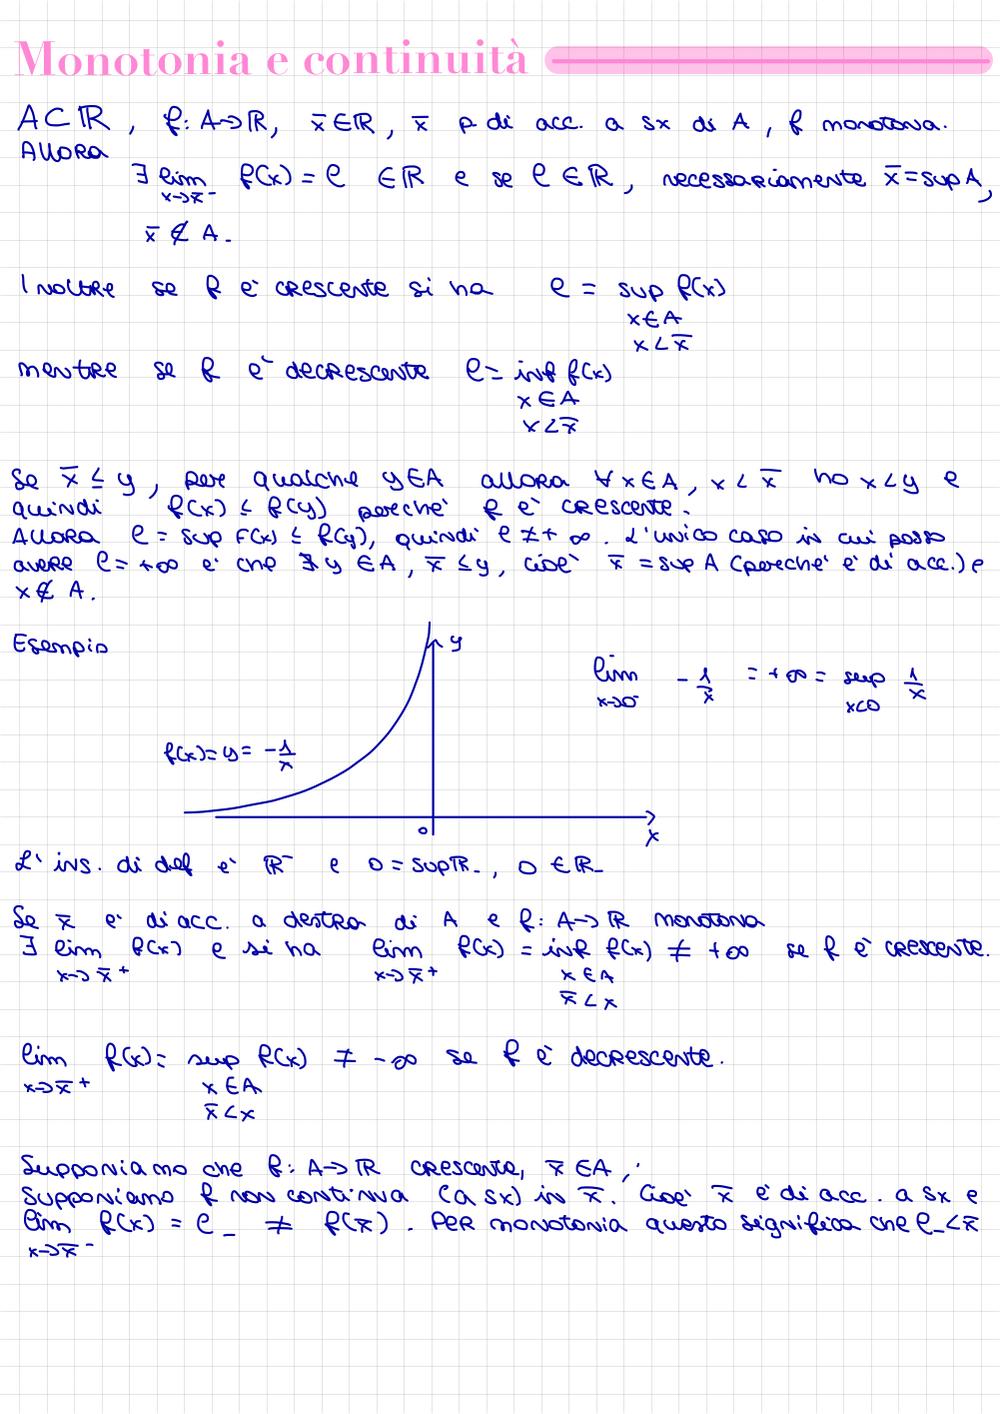 Monotonia e continuità
A⊂ℝ, f: A→ℝ, x̄∈ℝ, x̄ p di acc. a sx di A, f monotona.
Allora
∃ lim f(x) = ℓ ∈ℝ e se ℓ∈ℝ, necessariamente x̄=sup A,
x→x̄⁻
x̄ ∉ A.
Inoltre se f è crescente si ha ℓ = sup f(x)
x∈A
x<x̄
mentre se f è decrescente ℓ= inf f(x)
x∈A
x<x̄
Se x̄ ≤ y, per qualche y∈A allora ∀x∈A, x<x̄ ho x<y e
quindi f(x) ≤ f(y) perché f è crescente.
Allora ℓ = sup F(x) ≤ f(y), quindi ℓ ≠+∞. L'unico caso in cui posso
avere ℓ= +∞ è che ∄y∈A, x̄≤y, cioè x̄=sup A (perché è di acc.) e
x∉A.
Esempio
y
lim -1/x = +∞ = sup 1/x
x→0⁻ x<0
f(x)=y= -1/x
0
x
L'ins. di def è ℝ⁻ e 0=supℝ₋, 0∈ℝ₋
Se x̄ è di acc. a destra di A e f: A→ℝ monotona
∃ lim f(x) e si ha lim f(x) = inf f(x) ≠ +∞ se f è crescente.
x→x̄⁺ x→x̄⁺ x∈A
x̄<x
lim f(x)= sup f(x) ≠ -∞ se f è decrescente.
x→x̄⁺ x∈A
x̄<x
Supponiamo che f: A→ℝ crescente, x̄∈A,
Supponiamo f non continua (a sx) in x̄. Cioè x̄ è di acc. a sx e
lim f(x) = ℓ₋ ≠ f(x̄). Per monotonia questo significa che ℓ₋<x̄
x→x̄⁻